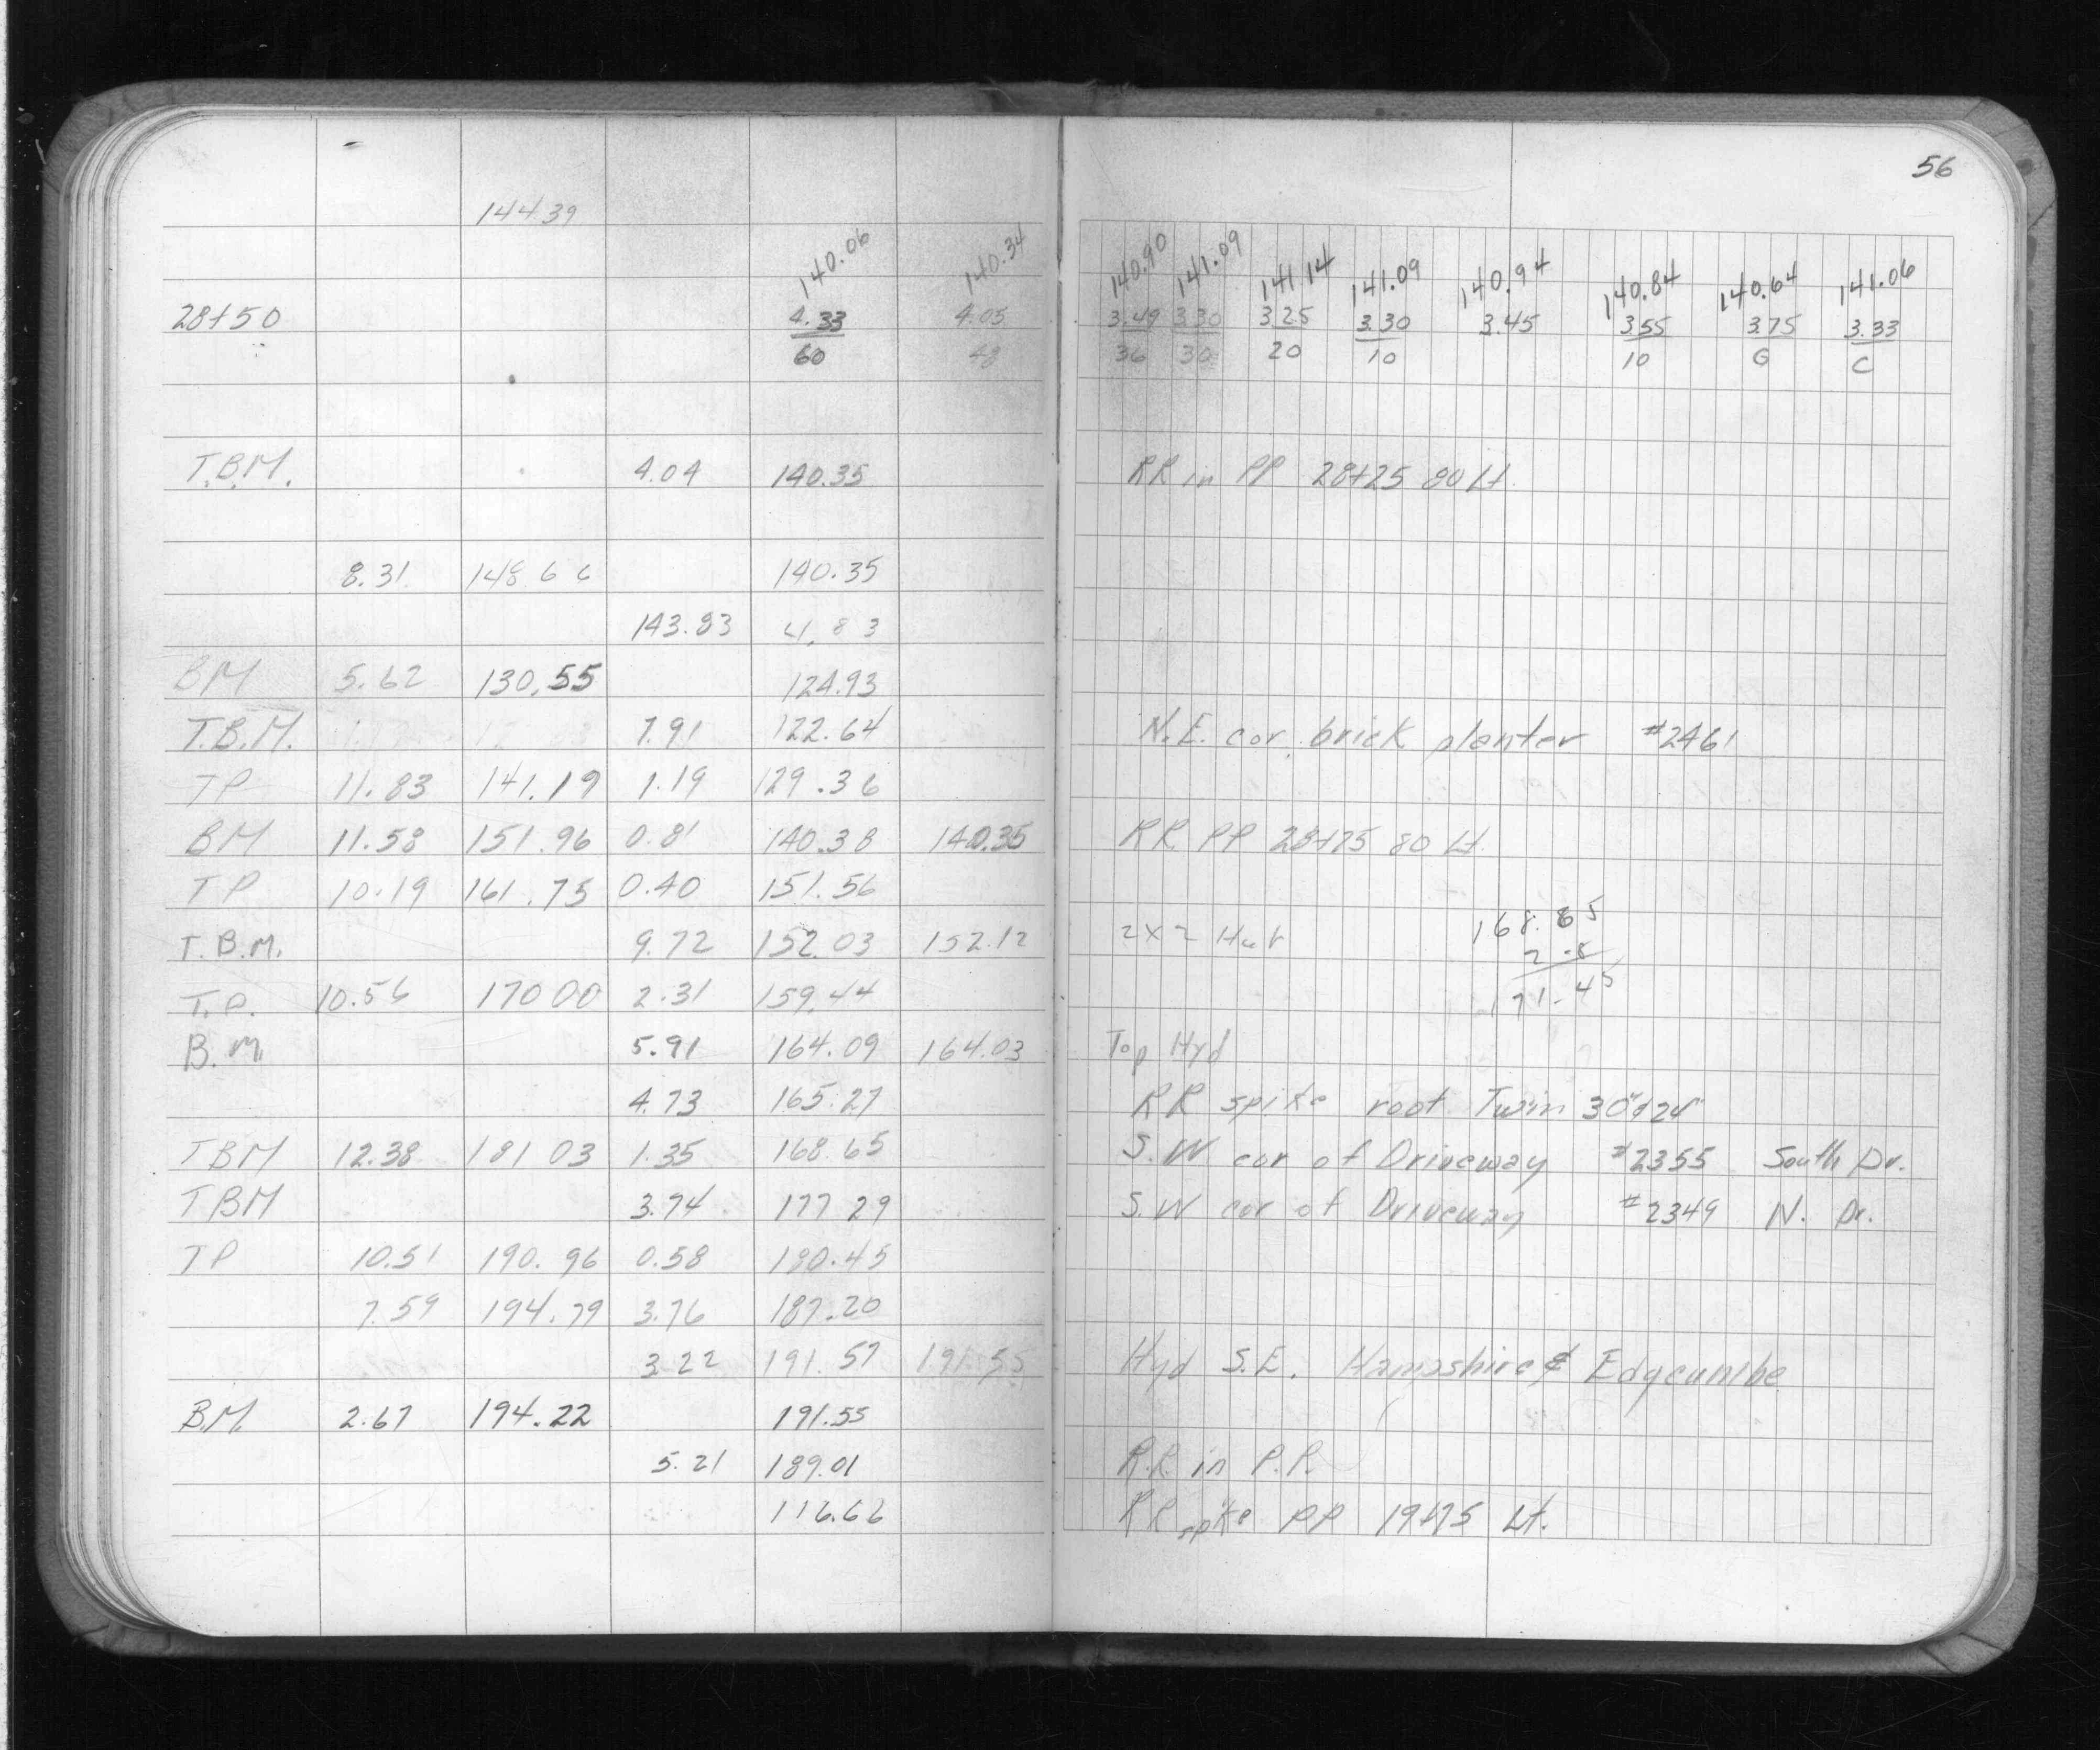 56
144.39
140.06 140.34 140.90 141.09 141.14 141.09 140.94 140.84 140.64 141.06
28+50 4.33 4.05 3.49 3.30 3.25 3.30 3.45 3.55 3.75 3.33
60 48 36 30 20 10 10 G C
T.B.M. 4.04 140.35 RR in PP 28+25 80 Lt.
8.31 148 66 140.35
143.83 4.83
BM 5.62 130.55 124.93
T.B.M. 7.91 122.64 N.E. cor. brick planter #2461
TP 11.83 141.19 1.19 129.36
BM 11.58 151.96 0.81 140.38 140.35 RR PP 28+25 80 Lt.
TP 10.19 161.75 0.40 151.56
T.B.M. 9.72 152.03 152.12 2x2 Hub 168.65
2.8
T.P. 10.56 170 00 2.31 159.44 171.45
B.M. 5.91 164.09 164.03 Top Hyd
4.73 165.27 RR spike root Twin 30"&24"
TBM 12.38 181 03 1.35 168.65 S.W cor of Driveway #2355 South Dr.
TBM 3.74 177 29 S.W cor of Driveway #2349 N. Dr.
TP 10.51 190.96 0.58 180.45
7.59 194.79 3.76 187.20
3.22 191.57 191.55 Hyd S.E. Hampshire & Edgcumbe
B.M. 2.67 194.22 191.55
5.21 189.01 R.R. in P.P.
116.62 RR spike PP 19+75 Lt.